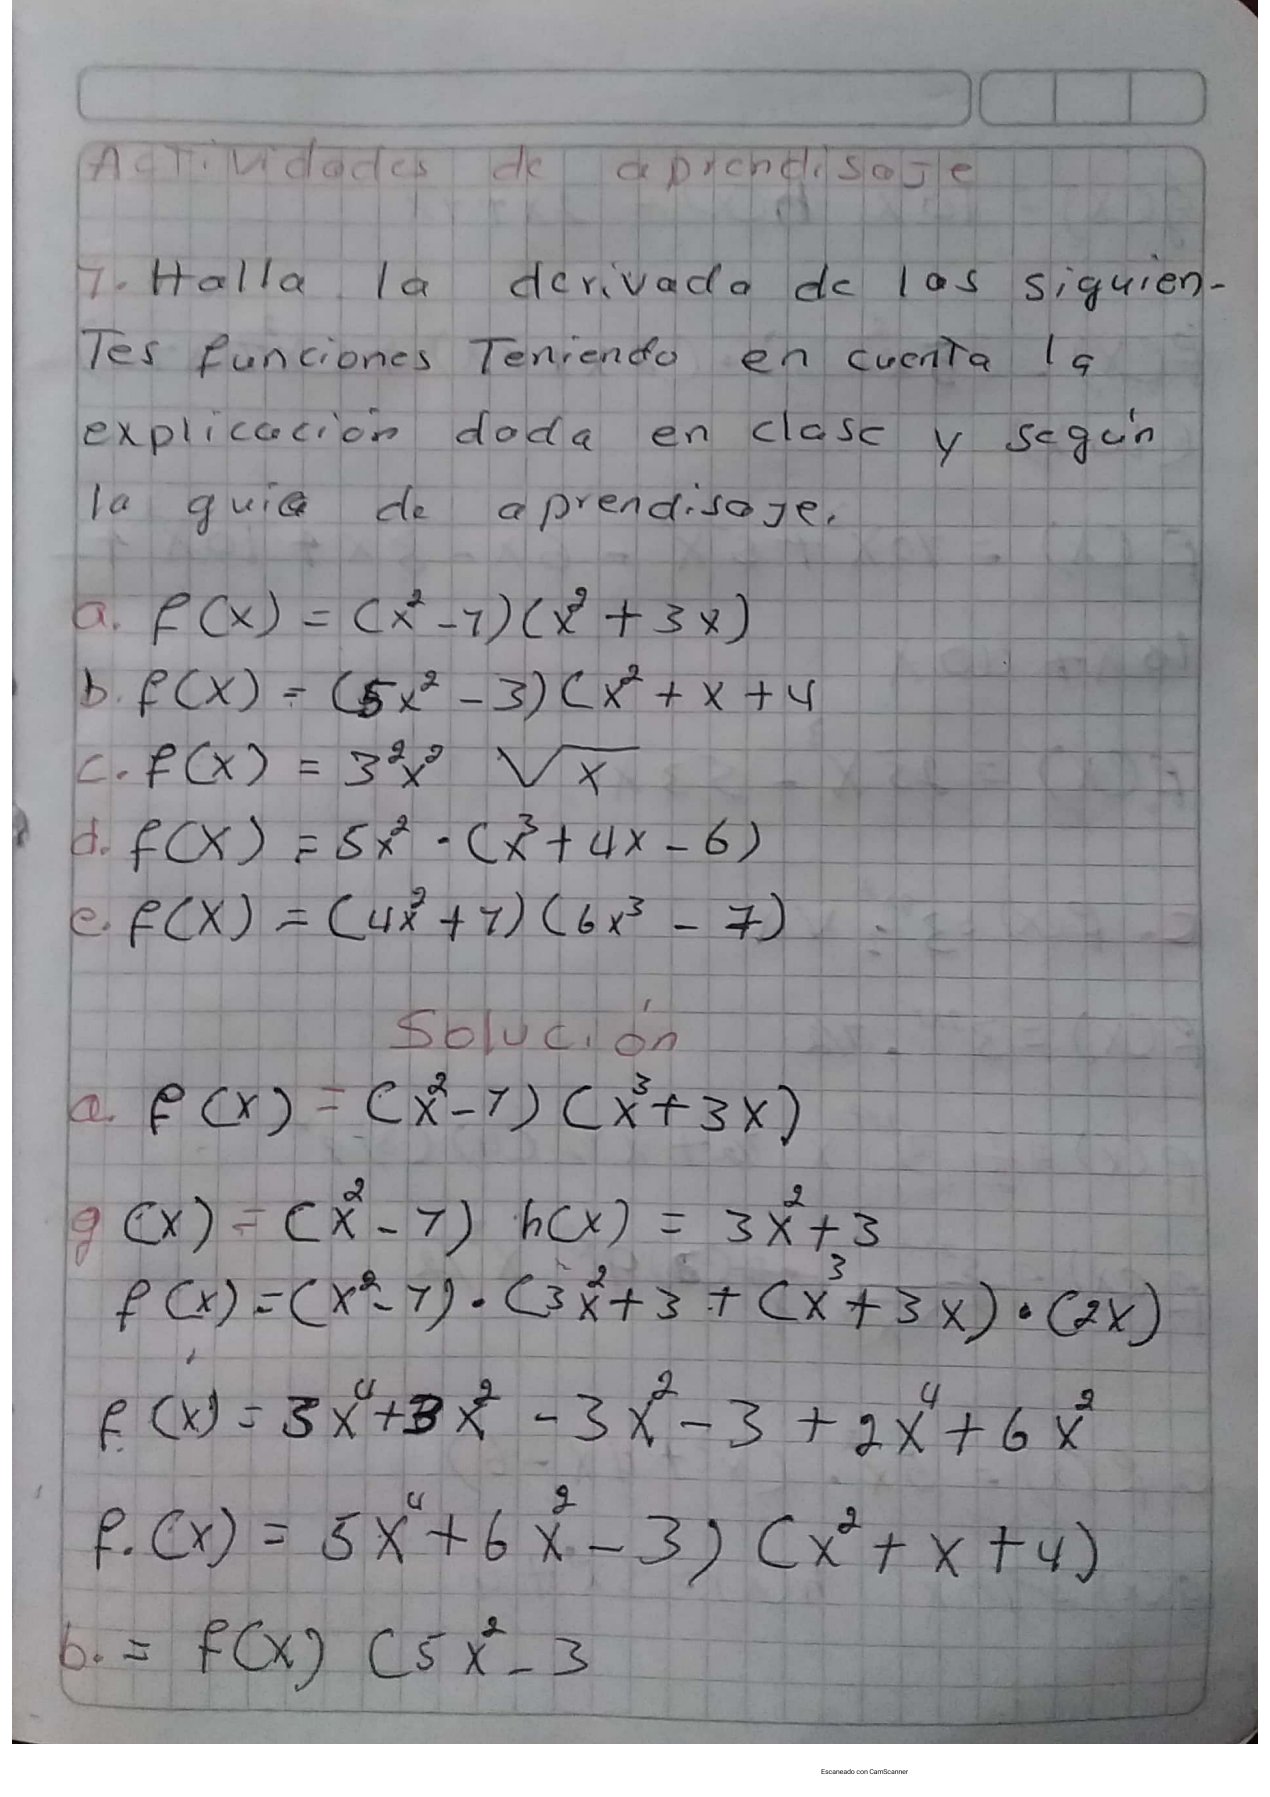 Actividades de aprendisaje
1. Halla la derivada de las siguien-
Tes funciones Teniendo en cuenta la
explicación dada en clase y según
la guia de aprendisaje.
a. f(x) = (x² - 1)(x² + 3x)
b. f(x) = (5x² - 3)(x² + x + 4
c. f(x) = 3²x² √x
d. f(x) = 5x² · (x³ + 4x - 6)
e. f(x) = (4x² + 1)(6x³ - 7)
Solución
a. f(x) = (x² - 1)(x³ + 3x)
g(x) = (x² - 1) h(x) = 3x² + 3
f(x) = (x² - 1) · (3x² + 3 + (x³ + 3x) · (2x)
f.(x)́ = 3x⁴ + 3x² - 3x² - 3 + 2x⁴ + 6x²
f.(x) = 5x⁴ + 6x² - 3) (x² + x + 4)
b. = f(x) (5x² - 3
Escaneado con CamScanner